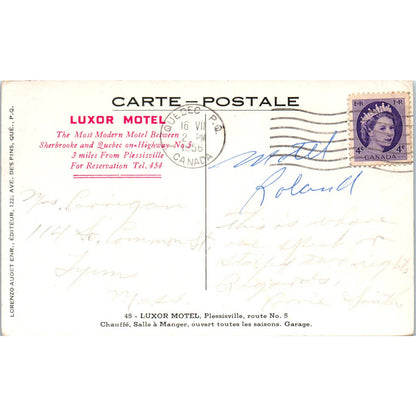 CARTE-POSTALE
LUXOR MOTEL
The Most Modern Motel Between
Sherbrooke and Quebec on-Highway No. 5
3 miles From Plessisville
For Reservation Tel. 454
QUEBEC, P.Q.
16 VII
2 PM
CANADA
E II R E II R
4¢ CANADA 4¢
Motel
Roland
Mrs.
114 So. Common St.
Lynn
Mass.
this is
we
Regards,
LORENZO AUDET ENR., ÉDITEUR, 122, AVE. DES PINS, QUÉ., P.Q.
45 - LUXOR MOTEL, Plessisville, route No. 5
Chauffé, Salle à Manger, ouvert toutes les saisons. Garage.